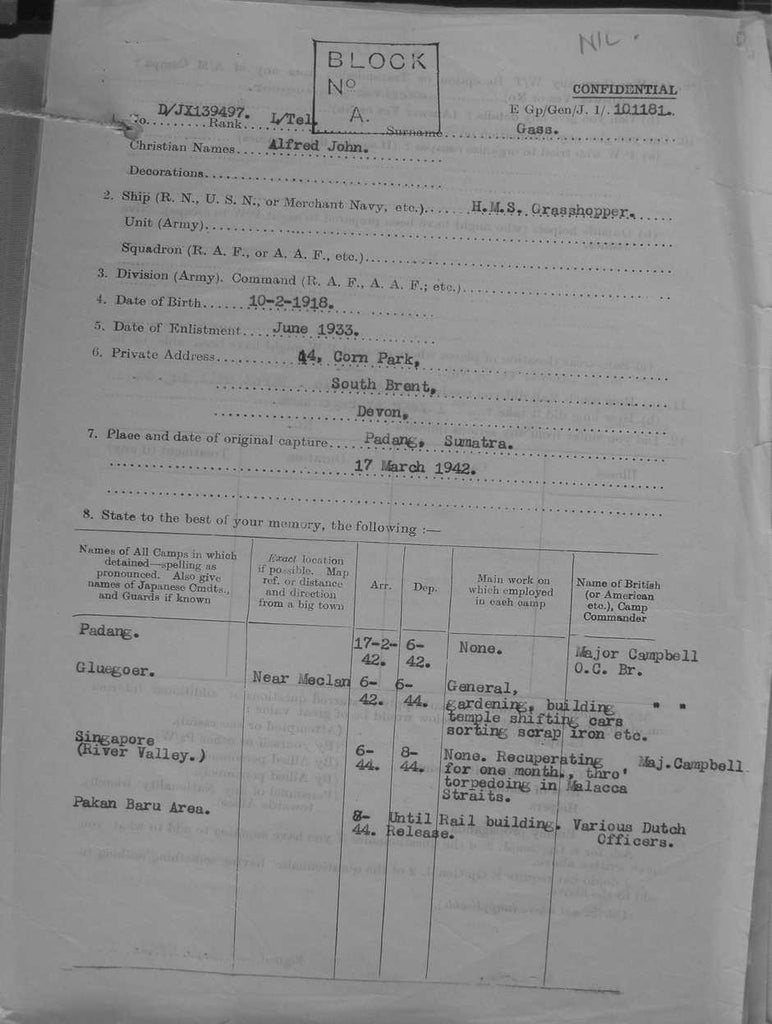 NIL.
BLOCK
No
A.
CONFIDENTIAL
E Gp/Gen/J. 1/. 101181.
No. D/JX139497. Rank L/Tel Surname Gass.
Christian Names.... Alfred John.
Decorations
2. Ship (R. N., U. S. N., or Merchant Navy, etc.)...... H.M.S. Grasshopper.
Unit (Army)
Squadron (R. A. F., or A. A. F., etc.)
3. Division (Army). Command (R. A. F., A. A. F.; etc.)
4. Date of Birth...... 10-2-1918.
5. Date of Enlistment.... June 1933.
6. Private Address 44, Corn Park,
South Brent,
Devon,
7. Place and date of original capture..... Padang, Sumatra.
17 March 1942.
8. State to the best of your memory, the following :—
Names of All Camps in which detained—spelling as pronounced. Also give names of Japanese Cmdts., and Guards if known
Exact location if possible. Map ref. or distance and direction from a big town
Arr.
Dep.
Main work on which employed in each camp
Name of British (or American etc.), Camp Commander
Padang. 17-2-42. 6-42. None. Major Campbell O.C. Br.
Gluegoer. Near Meclan 6-42. 6-44. General, gardening, building temple shifting cars sorting scrap iron etc. " "
Singapore (River Valley.) 6-44. 8-44. None. Recuperating for one month., thro' torpedoing in Malacca Straits. Maj.Campbell
Pakan Baru Area. 8-44. Until Release. Rail building. Various Dutch Officers.